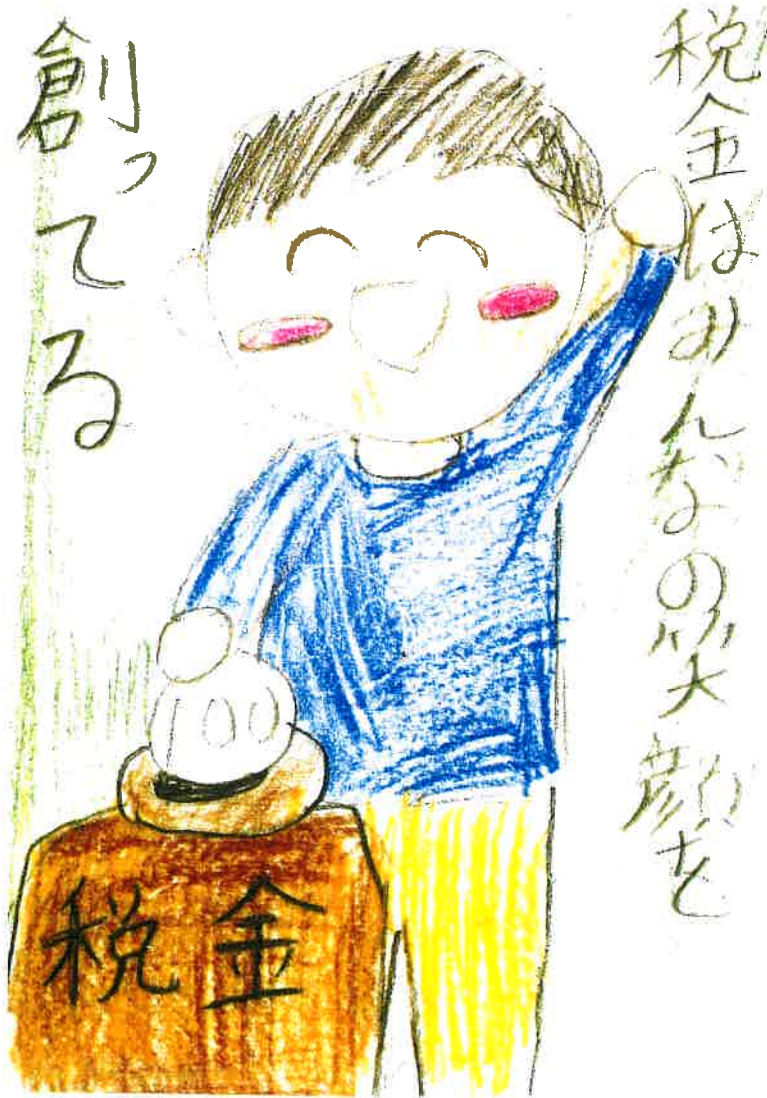 税金はみんなの笑顔を
創ってる
100
税金